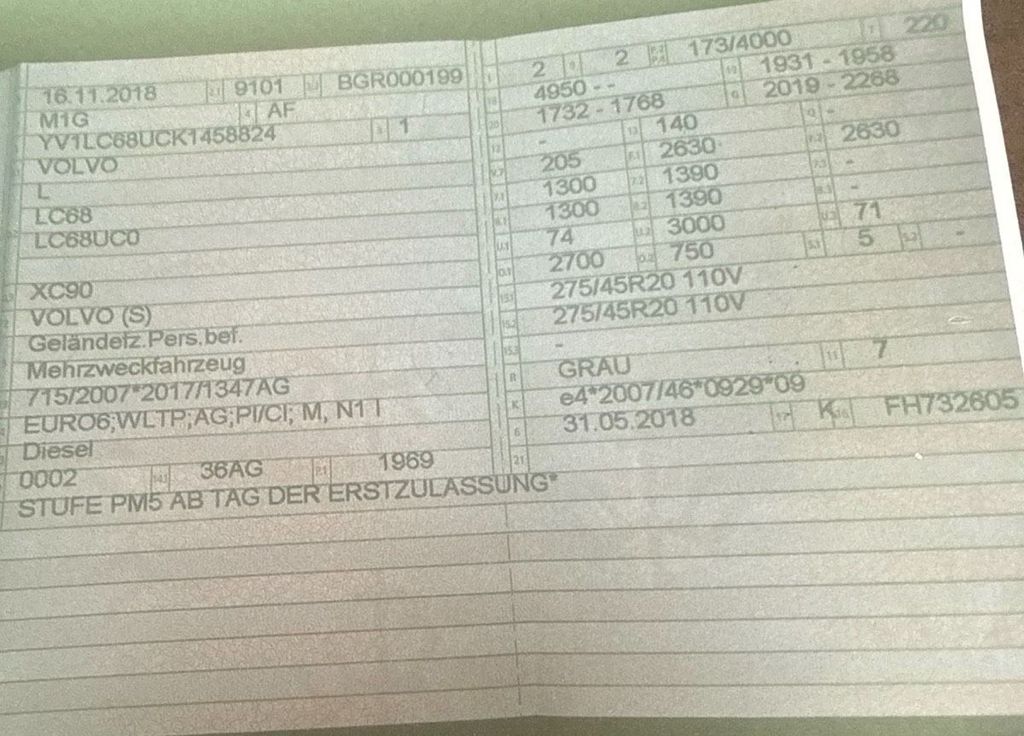 16.11.2018 9101 BGR000199
M1G AF
YV1LC68UCK1458824 1
VOLVO
L
LC68
LC68UC0
XC90
VOLVO (S)
Geländefz.Pers.bef.
Mehrzweckfahrzeug
715/2007*2017/1347AG
EURO6;WLTP;AG;PI/CI; M, N1 I
Diesel
0002 36AG 1969
STUFE PM5 AB TAG DER ERSTZULASSUNG*
2 2 173/4000 220
4950 - - 1931 - 1958
1732 - 1768 2019 - 2268
- 140 -
205 2630 2630
1300 1390 -
1300 1390 -
74 3000 71
2700 750 5 -
275/45R20 110V
275/45R20 110V
-
GRAU 7
e4*2007/46*0929*09
31.05.2018 K FH732605